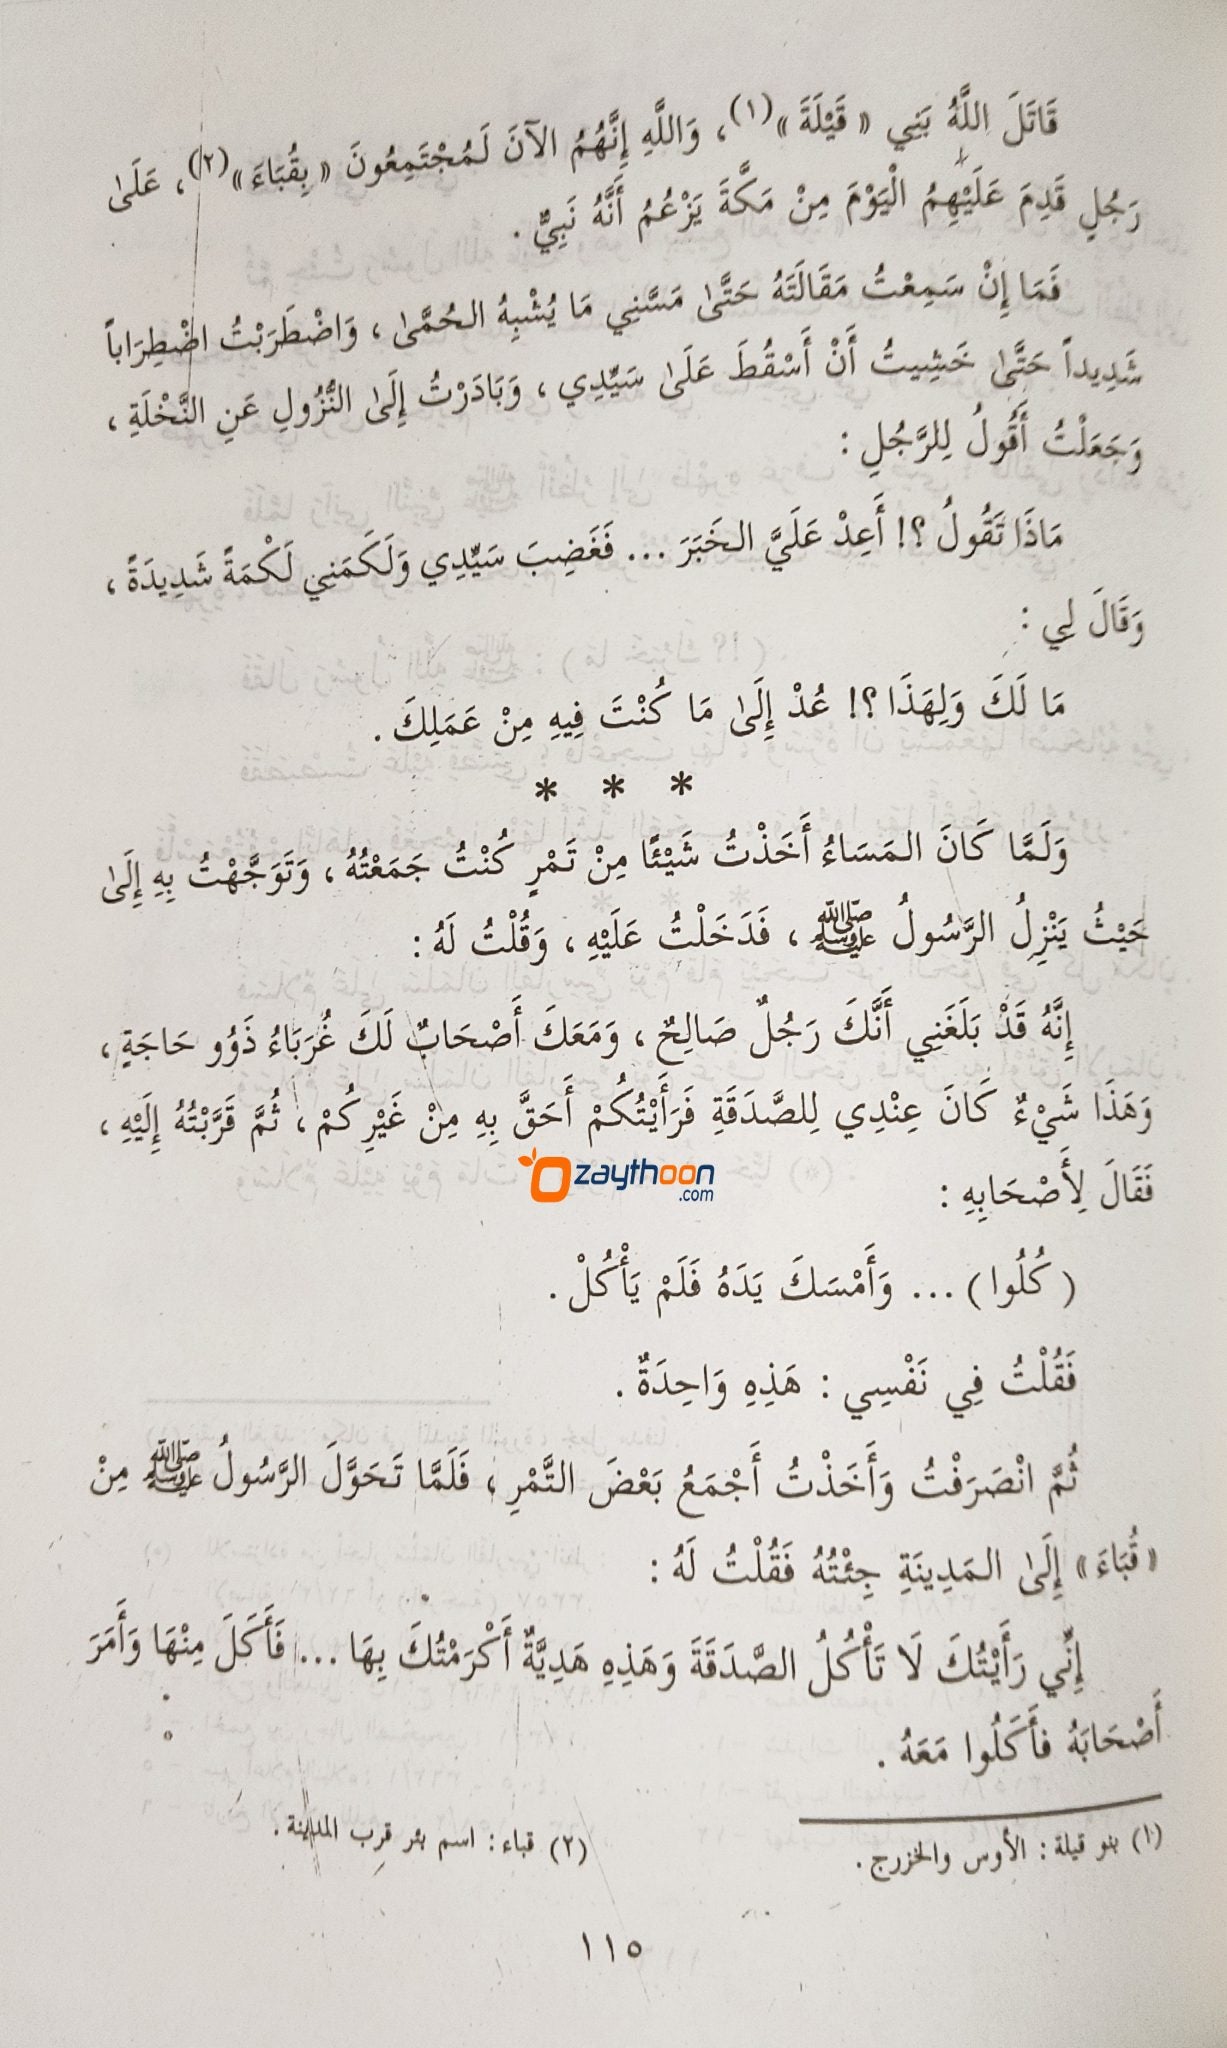 قَاتَلَ اللَّهُ بَنِي « قَيْلَةَ »(١)، وَاللَّهِ إِنَّهُمُ الآنَ لَمُجْتَمِعُونَ « بِقُبَاءَ »(٢)، عَلَىٰ
رَجُلٍ قَدِمَ عَلَيْهِمُ الْيَوْمَ مِنْ مَكَّةَ يَزْعُمُ أَنَّهُ نَبِيٌّ .
فَمَا إِنْ سَمِعْتُ مَقَالَتَهُ حَتَّىٰ مَسَّنِي مَا يُشْبِهُ الحُمَّىٰ ، وَاضْطَرَبْتُ اضْطِرَاباً
شَدِيداً حَتَّىٰ خَشِيتُ أَنْ أَسْقُطَ عَلَىٰ سَيِّدِي ، وَبَادَرْتُ إِلَىٰ النُّزُولِ عَنِ النَّخْلَةِ ،
وَجَعَلْتُ أَقُولُ لِلرَّجُلِ :
مَاذَا تَقُولُ ؟! أَعِدْ عَلَيَّ الخَبَرَ ... فَغَضِبَ سَيِّدِي وَلَكَمَنِي لَكْمَةً شَدِيدَةً ،
وَقَالَ لِي :
مَا لَكَ وَلِهَذَا ؟! عُدْ إِلَىٰ مَا كُنْتَ فِيهِ مِنْ عَمَلِكَ .
* * *
وَلَمَّا كَانَ المَسَاءُ أَخَذْتُ شَيْئًا مِنْ تَمْرٍ كُنْتُ جَمَعْتُهُ ، وَتَوَجَّهْتُ بِهِ إِلَىٰ
حَيْثُ يَنْزِلُ الرَّسُولُ ﷺ ، فَدَخَلْتُ عَلَيْهِ ، وَقُلْتُ لَهُ :
إِنَّهُ قَدْ بَلَغَنِي أَنَّكَ رَجُلٌ صَالِحٌ ، وَمَعَكَ أَصْحَابٌ لَكَ غُرَبَاءُ ذَوُو حَاجَةٍ ،
وَهَذَا شَيْءٌ كَانَ عِنْدِي لِلصَّدَقَةِ فَرَأَيْتُكُمْ أَحَقَّ بِهِ مِنْ غَيْرِكُمْ ، ثُمَّ قَرَّبْتُهُ إِلَيْهِ ،
zaythoon
.com
فَقَالَ لِأَصْحَابِهِ :
( كُلُوا ) ... وَأَمْسَكَ يَدَهُ فَلَمْ يَأْكُلْ .
فَقُلْتُ فِي نَفْسِي : هَذِهِ وَاحِدَةٌ .
ثُمَّ انْصَرَفْتُ وَأَخَذْتُ أَجْمَعُ بَعْضَ التَّمْرِ ، فَلَمَّا تَحَوَّلَ الرَّسُولُ ﷺ مِنْ
« قُبَاءَ » إِلَىٰ المَدِينَةِ جِئْتُهُ فَقُلْتُ لَهُ :
إِنِّي رَأَيْتُكَ لَا تَأْكُلُ الصَّدَقَةَ وَهَذِهِ هَدِيَّةٌ أَكْرَمْتُكَ بِهَا ... فَأَكَلَ مِنْهَا وَأَمَرَ
أَصْحَابَهُ فأَكَلُوا مَعَهُ .
(١) بنو قيلة : الأوس والخزرج . (٢) قباء : اسم بئر قرب المدينة .
١١٥